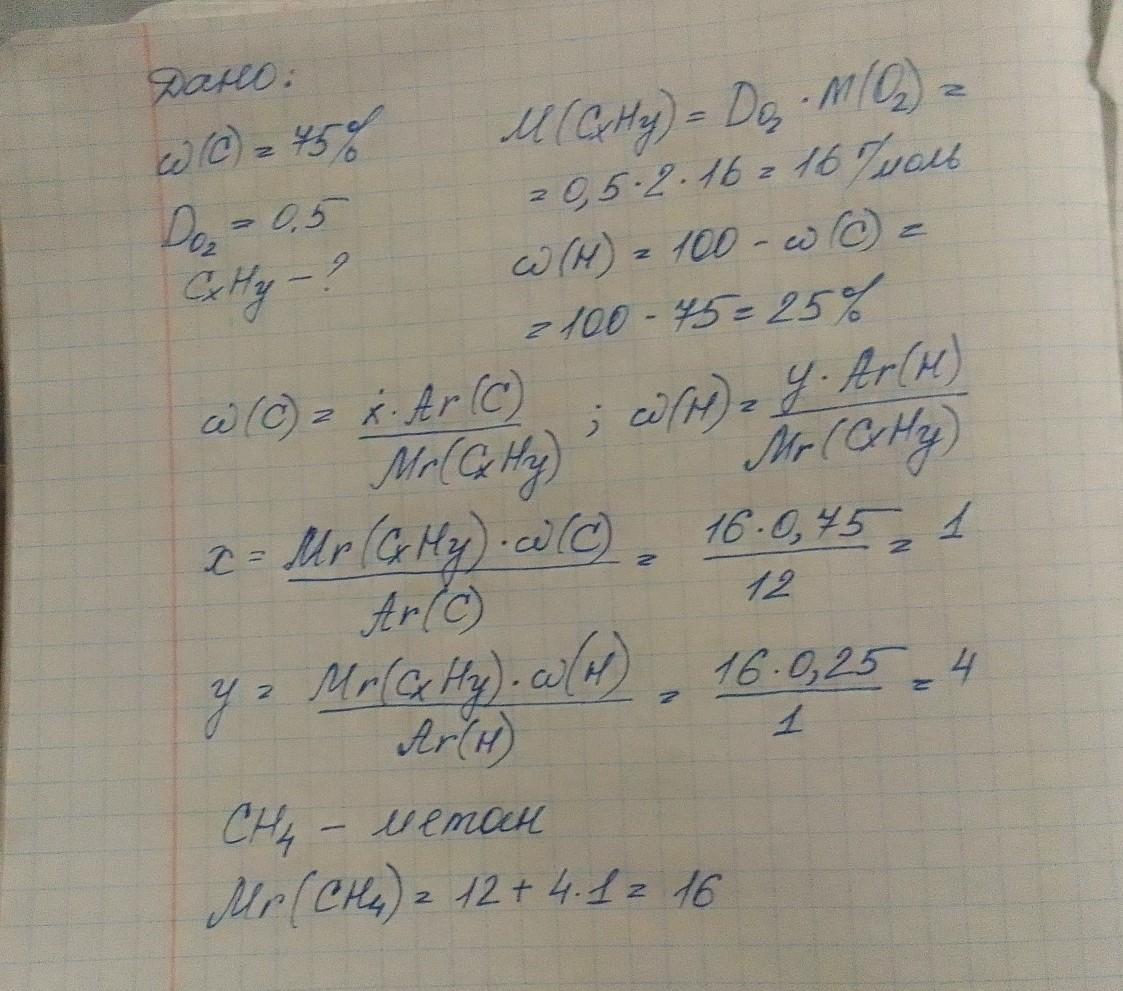 Дано:
ω(C) = 75%
D O₂ = 0,5
CxHy - ?
M(CxHy) = D O₂ · M(O₂) =
= 0,5 · 2 · 16 = 16 г/моль
ω(H) = 100 - ω(C) =
= 100 - 75 = 25%
ω(C) = x · Ar(C) / Mr(CxHy) ; ω(H) = y · Ar(H) / Mr(CxHy)
x = Mr(CxHy) · ω(C) / Ar(C) = 16 · 0,75 / 12 = 1
y = Mr(CxHy) · ω(H) / Ar(H) = 16 · 0,25 / 1 = 4
CH₄ - метан
Mr(CH₄) = 12 + 4 · 1 = 16